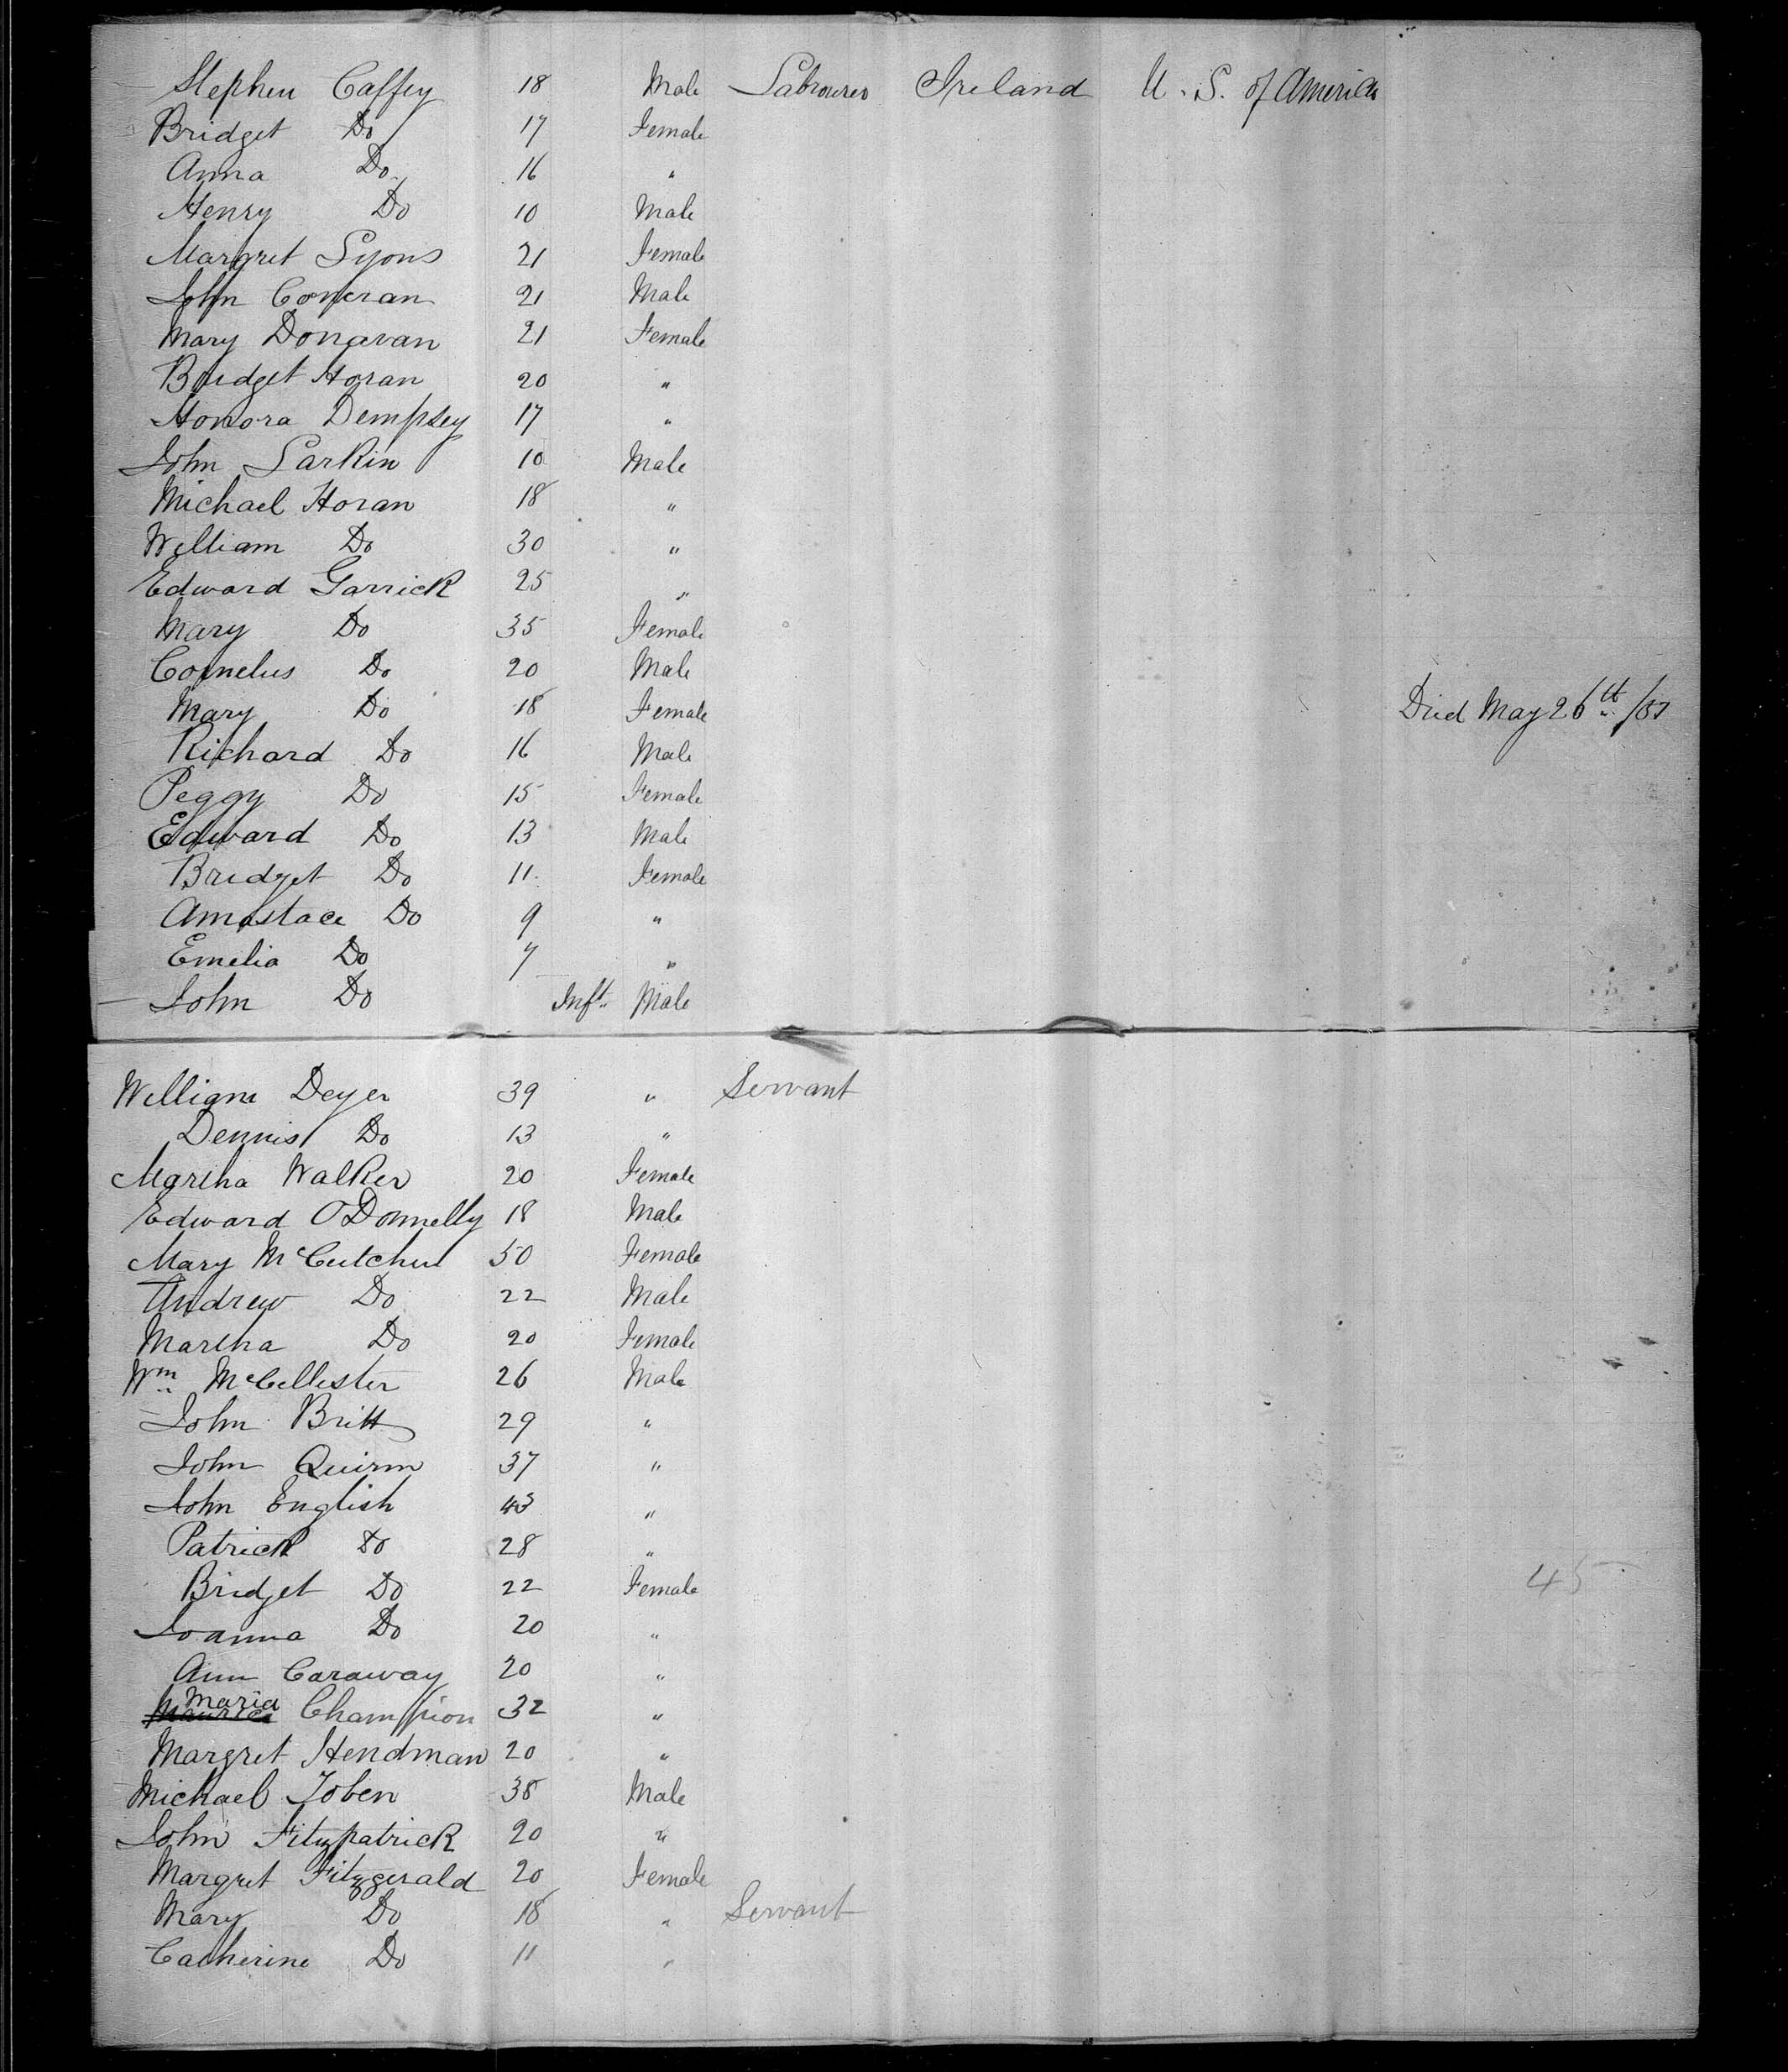 Stephen Caffey 18 Male Labourer Ireland U. S. of America
Bridget Do 17 Female
Anna Do 16 "
Henry Do 10 Male
Margret Lyons 21 Female
John Corcran 21 Male
Mary Donavan 21 Female
Bridget Horan 20 "
Honora Dempsey 17 "
John Larkin 10 Male
Michael Horan 18 "
William Do 30 "
Edward Garrick 25 "
Mary Do 35 Female
Cornelus Do 20 Male
Mary Do 18 Female Died May 26th /51
Richard Do 16 Male
Peggy Do 15 Female
Edward Do 13 Male
Bridget Do 11 Female
Amastace Do 9 "
Emelia Do 7 "
John Do Inft. Male
William Deyer 39 " Servant
Dennis Do 13 "
Martha Walker 20 Female
Edward O'Donnelly 18 Male
Mary McCutchen 50 Female
Andrew Do 22 Male
Martha Do 20 Female
Wm McCellester 26 Male
John Britt 29 "
John Quinn 37 "
John English 43 "
Patrick Do 28 "
Bridget Do 22 Female
45
Joanna Do 20 "
Ann Caraway 20 "
Maria Champion 32 "
Margret Hendman 20 "
Michael Toben 38 Male
John Fitzpatrick 20 "
Margret Fitzgerald 20 Female
Mary Do 18 " Servant
Catherine Do 11 "